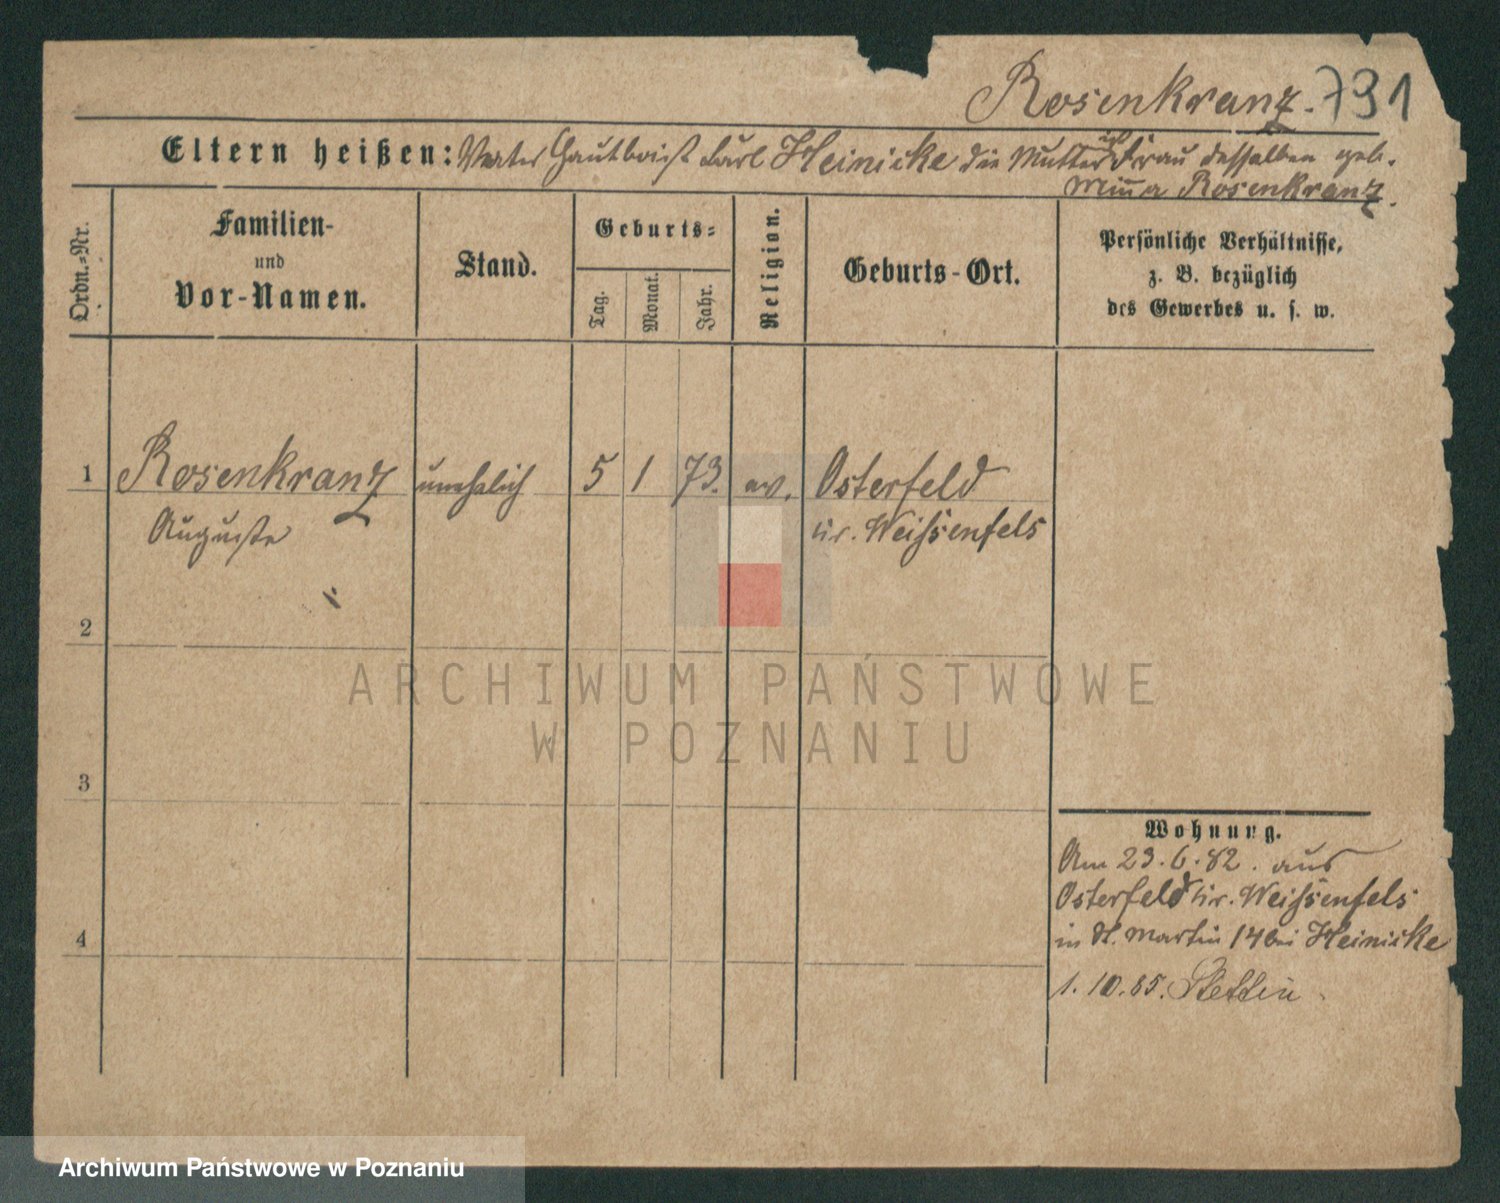 Rosenkranz. 731
Eltern heißen: Vater Hautboist Carl Heinicke die Mutter ist Frau desselben geb.
Minna Rosenkranz.
Ordn.-Nr.
Familien-
und
Vor-Namen.
Stand.
Geburts-
Tag.
Monat.
Jahr.
Religion.
Geburts-Ort.
Persönliche Verhältnisse,
z. B. bezüglich
des Gewerbes u. s. w.
1 Rosenkranz unehelich 5 1 73. ev. Osterfeld
Auguste Kr. Weissenfels
2
3
4
Wohnung.
Am 23.6.82. aus
Osterfeld Kr. Weissenfels
in St. Martin 14 bei Heinicke
1.10.85. Stettin
ARCHIWUM PAŃSTWOWE
W POZNANIU
Archiwum Państwowe w Poznaniu